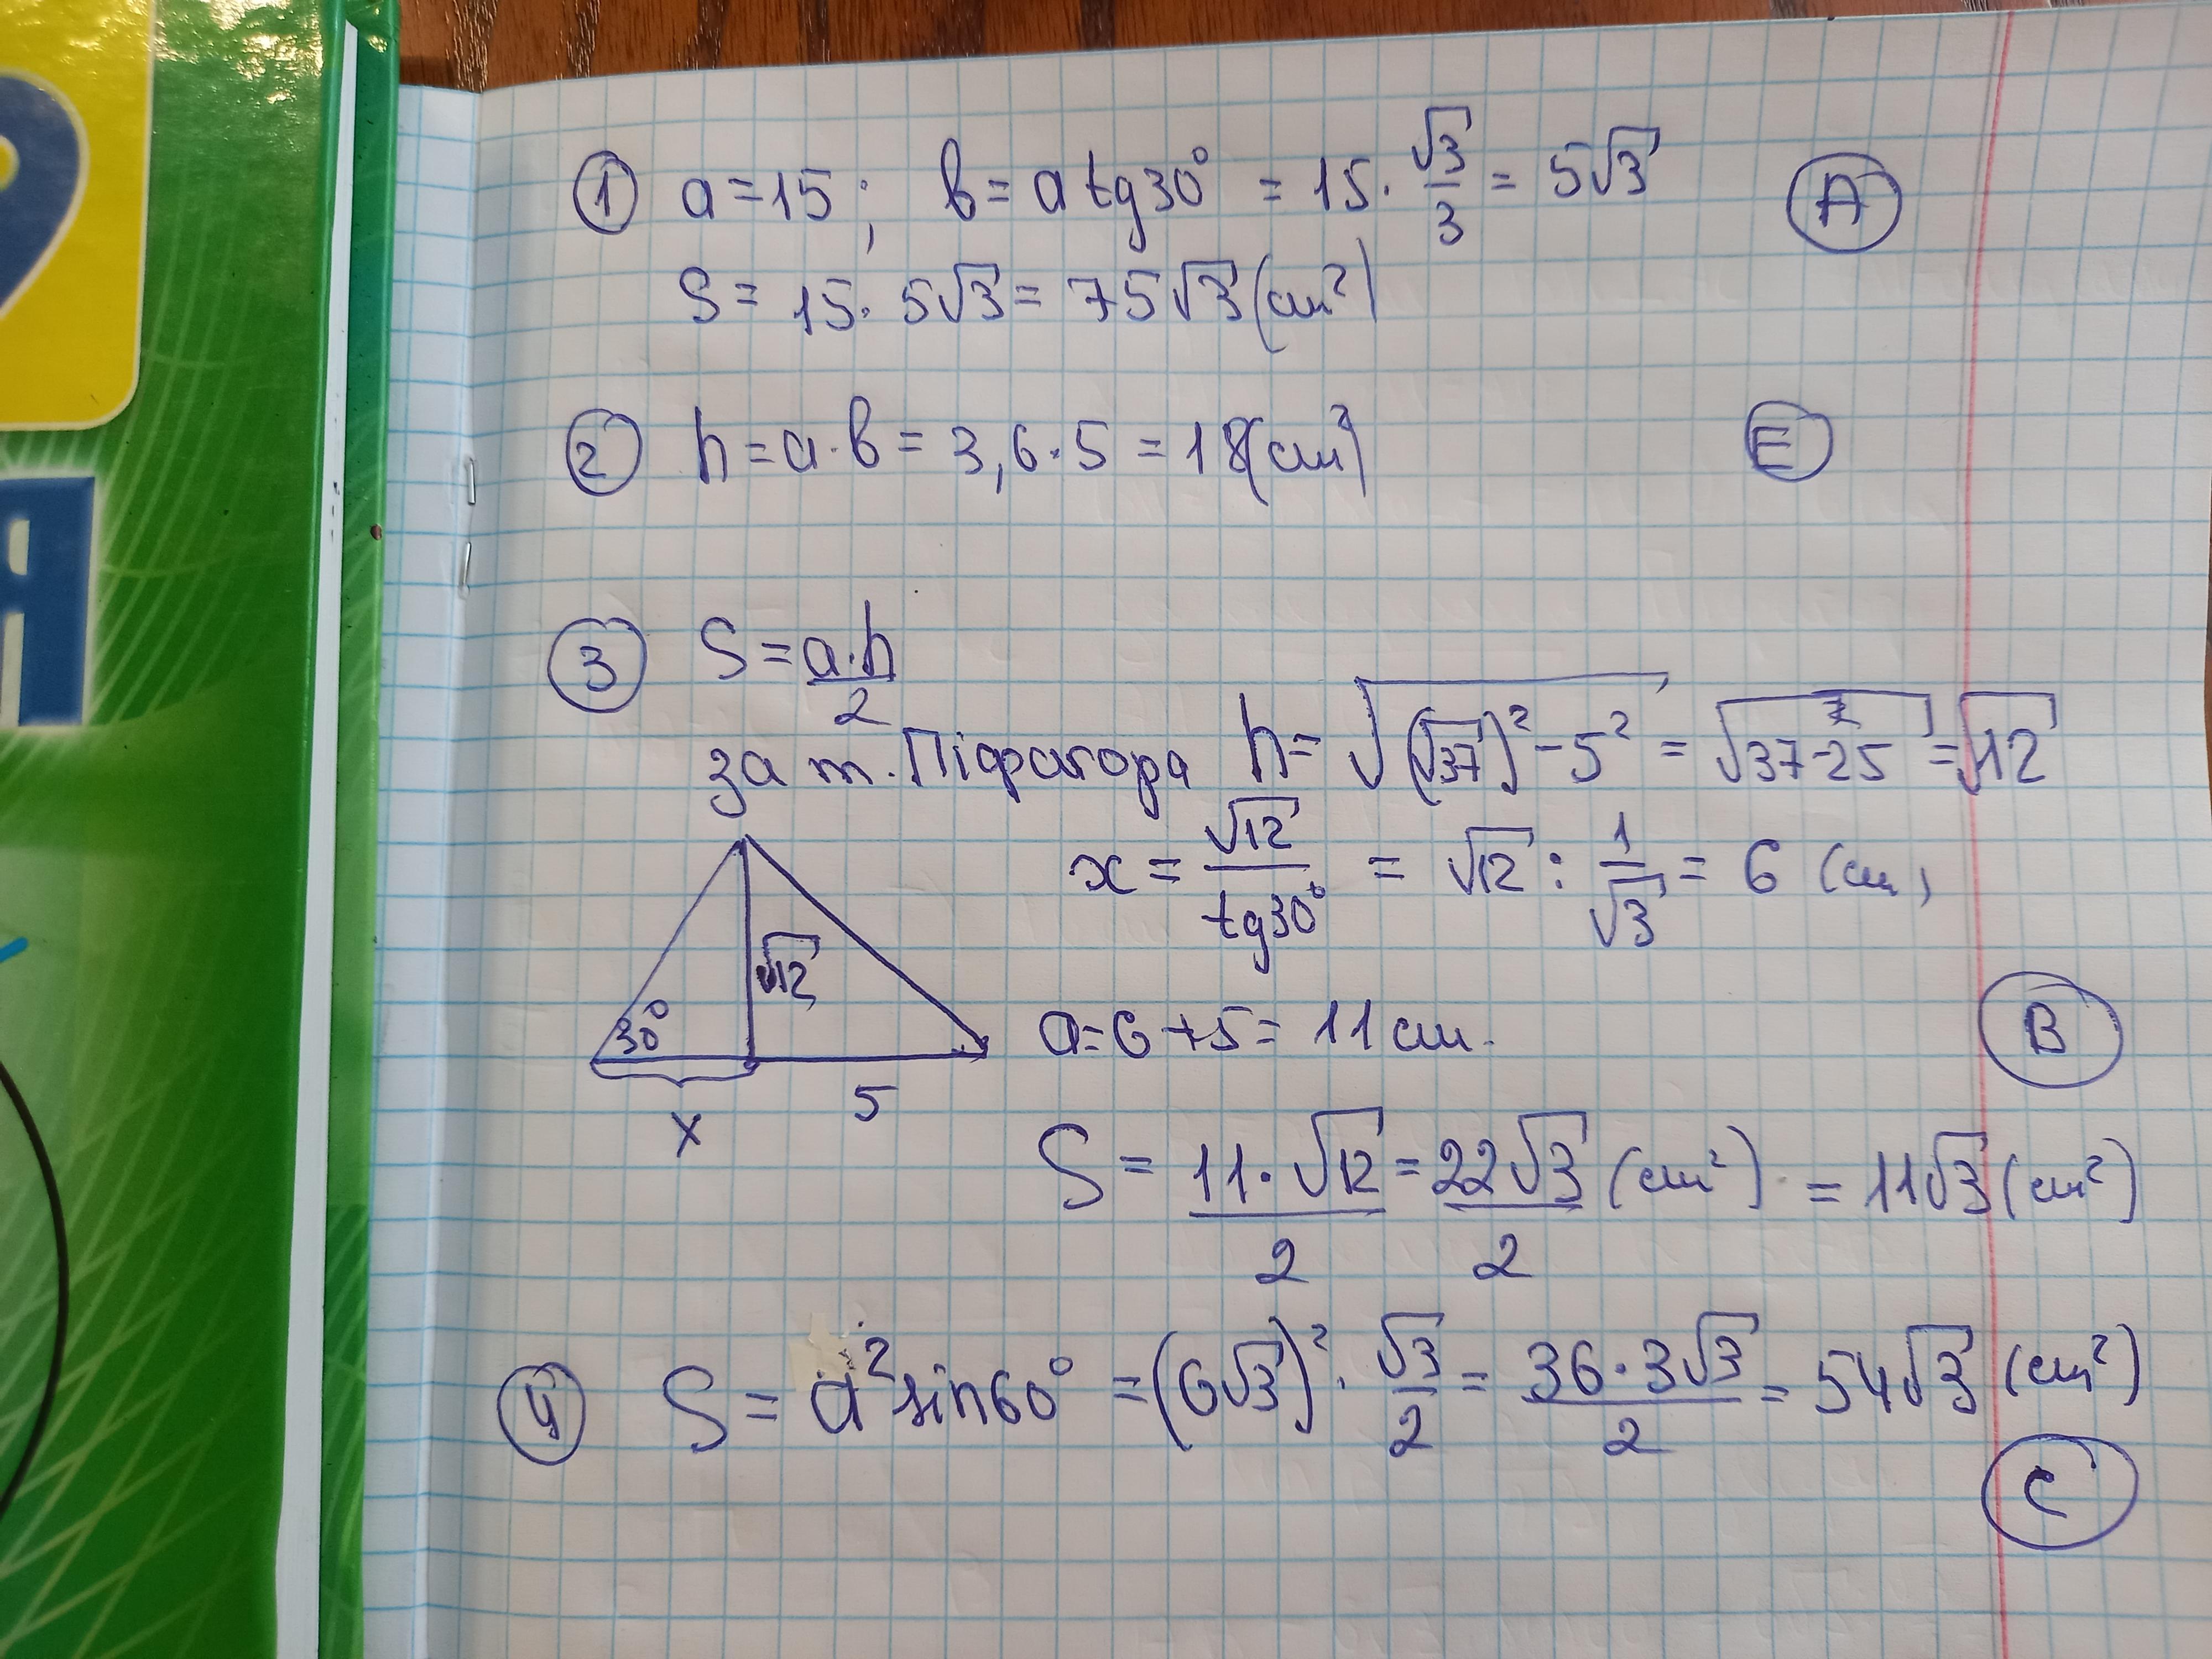 ① a=15; b= a tg30° = 15·√3/3 = 5√3 Ⓐ
S= 15·5√3= 75√3(см²)
② h=a·b= 3,6·5 =18(см²) Ⓔ
③ S=a·h/2
за т. Піфагора h= √((√37)²-5²) = √(37-25) =√12
x= √12/tg30° = √12 : 1/√3 = 6 (см)
√12
30°
a=6+5= 11 см. Ⓑ
x 5
S= 11·√12/2 = 22√3/2 (см²) = 11√3(см²)
④ S= a²sin60° =(6√3)²·√3/2 = 36·3√3/2 = 54√3 (см²)
Ⓒ
Я